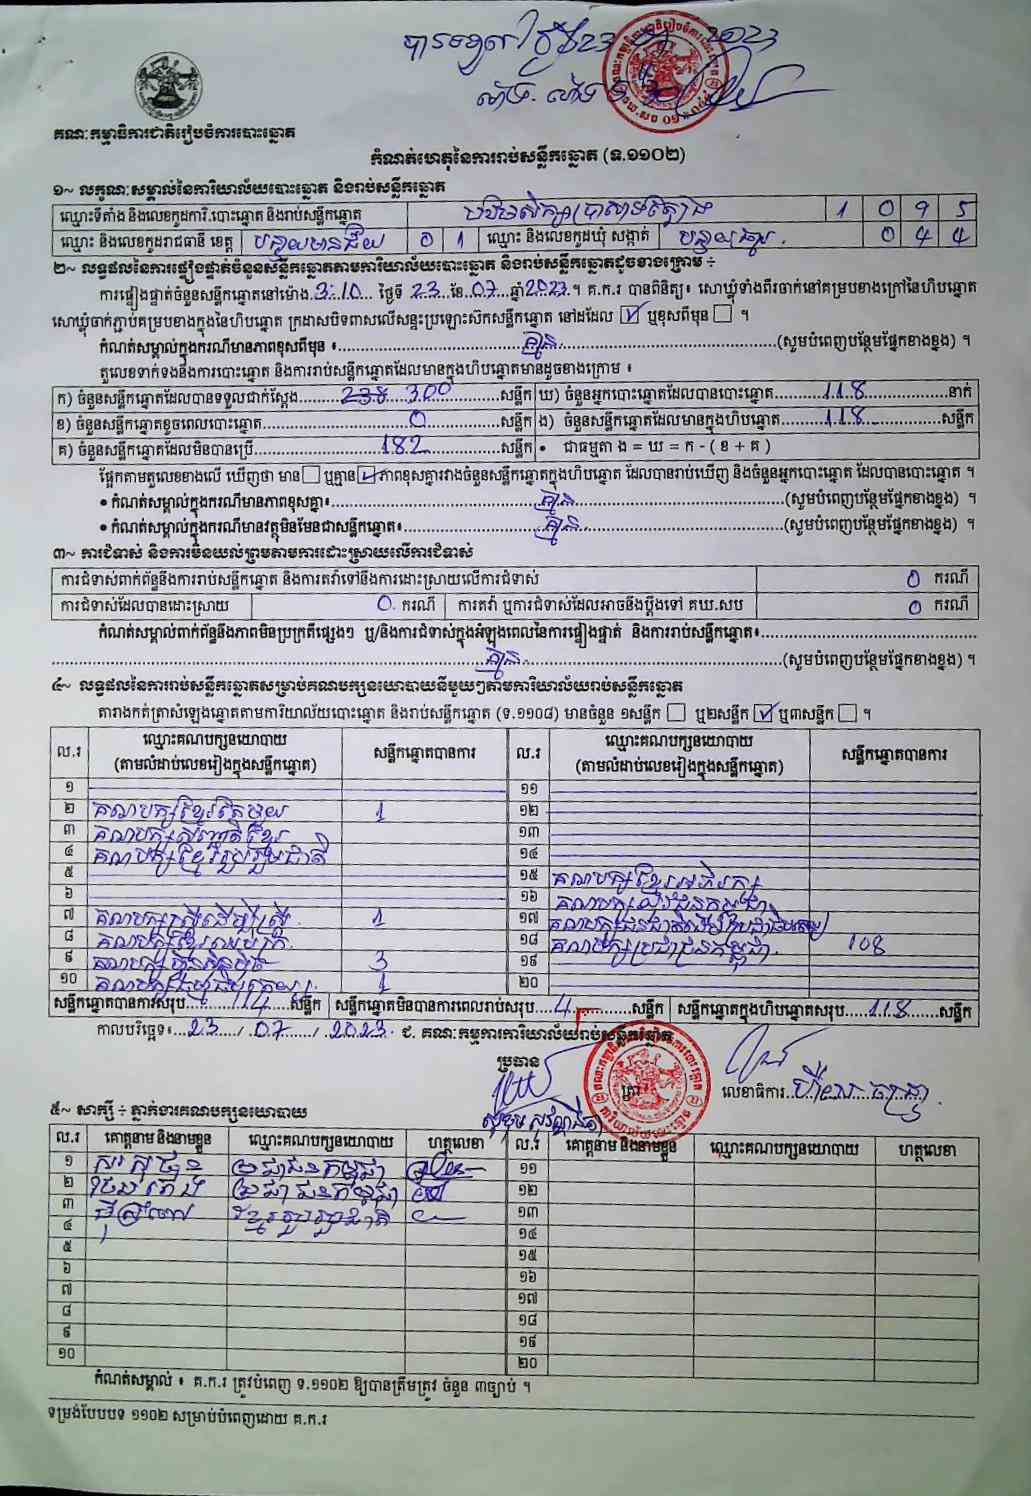 បានឃើញ ថ្ងៃ 23 2023
គណៈកម្មាធិការជាតិរៀបចំការបោះឆ្នោត
កំណត់ហេតុនៃការរាប់សន្លឹកឆ្នោត (ទ.១១០២)
១~ លក្ខណៈសម្គាល់នៃការិយាល័យបោះឆ្នោត និងរាប់សន្លឹកឆ្នោត
ឈ្មោះទីតាំង និងលេខកូដការិ.បោះឆ្នោត និងរាប់សន្លឹកឆ្នោត 1 0 9 5
ឈ្មោះ និងលេខកូដរាជធានី ខេត្ត បន្ទាយមានជ័យ 0 1 ឈ្មោះ និងលេខកូដឃុំ សង្កាត់ 0 4 4
២~ លទ្ធផលនៃការផ្ទៀងផ្ទាត់ចំនួនសន្លឹកឆ្នោតតាមការិយាល័យបោះឆ្នោត និងរាប់សន្លឹកឆ្នោតដូចខាងក្រោម ÷
ការផ្ទៀងផ្ទាត់ចំនួនសន្លឹកឆ្នោតនៅម៉ោង 3:10 ថ្ងៃទី 23 ខែ 07 ឆ្នាំ 2023 ។ គ.ក.រ បានពិនិត្យ៖ សោឃ្លុំទាំងពីរចាក់នៅគម្របខាងក្រៅនៃហិបឆ្នោត
សោឃ្លុំចាក់ភ្ជាប់គម្របខាងក្នុងនៃហិបឆ្នោត ក្រដាសបិទពាសលើសន្ទះប្រឡោះស៊កសន្លឹកឆ្នោត នៅដដែល ☑ ឬខុសពីមុន ☐ ។
កំណត់សម្គាល់ក្នុងករណីមានភាពខុសពីមុន ៖ គ្មាន (សូមបំពេញបន្ថែមផ្នែកខាងខ្នង) ។
តួលេខទាក់ទងនឹងការបោះឆ្នោត និងការរាប់សន្លឹកឆ្នោតដែលមានក្នុងហិបឆ្នោតមានដូចខាងក្រោម ៖
ក) ចំនួនសន្លឹកឆ្នោតដែលបានទទួលជាក់ស្តែង 300 សន្លឹក ឃ) ចំនួនអ្នកបោះឆ្នោតដែលបានបោះឆ្នោត 118 នាក់
ខ) ចំនួនសន្លឹកឆ្នោតខូចពេលបោះឆ្នោត 0 សន្លឹក ង) ចំនួនសន្លឹកឆ្នោតដែលមានក្នុងហិបឆ្នោត 118 សន្លឹក
គ) ចំនួនសន្លឹកឆ្នោតដែលមិនបានប្រើ 182 សន្លឹក • ជាធម្មតា ង = ឃ = ក - ( ខ + គ )
ផ្អែកតាមតួលេខខាងលើ ឃើញថា មាន ☐ ឬគ្មាន ☑ ភាពខុសគ្នារវាងចំនួនសន្លឹកឆ្នោតក្នុងហិបឆ្នោត ដែលបានរាប់ឃើញ និងចំនួនអ្នកបោះឆ្នោត ដែលបានបោះឆ្នោត ។
• កំណត់សម្គាល់ក្នុងករណីមានភាពខុសគ្នា៖ គ្មាន (សូមបំពេញបន្ថែមផ្នែកខាងខ្នង) ។
• កំណត់សម្គាល់ក្នុងករណីមានវត្ថុមិនមែនជាសន្លឹកឆ្នោត៖ គ្មាន (សូមបំពេញបន្ថែមផ្នែកខាងខ្នង) ។
៣~ ការជំទាស់ និងការមិនយល់ព្រមតាមការដោះស្រាយលើការជំទាស់
ការជំទាស់ពាក់ព័ន្ធនឹងការរាប់សន្លឹកឆ្នោត និងការតវ៉ាទៅនឹងការដោះស្រាយលើការជំទាស់ 0 ករណី
ការជំទាស់ដែលបានដោះស្រាយ 0 ករណី ការតវ៉ា ឬការជំទាស់ដែលអាចនឹងប្តឹងទៅ គឃ.សប 0 ករណី
កំណត់សម្គាល់ពាក់ព័ន្ធនឹងភាពមិនប្រក្រតីផ្សេងៗ ឬ/និងការជំទាស់ក្នុងអំឡុងពេលនៃការផ្ទៀងផ្ទាត់ និងការរាប់សន្លឹកឆ្នោត៖
គ្មាន (សូមបំពេញបន្ថែមផ្នែកខាងខ្នង) ។
៤~ លទ្ធផលនៃការរាប់សន្លឹកឆ្នោតសម្រាប់គណបក្សនយោបាយនីមួយៗតាមការិយាល័យរាប់សន្លឹកឆ្នោត
តារាងកត់ត្រាសំឡេងឆ្នោតតាមការិយាល័យបោះឆ្នោត និងរាប់សន្លឹកឆ្នោត (ទ.១១០៨) មានចំនួន ១សន្លឹក ☐ ឬ២សន្លឹក ☑ ឬ៣សន្លឹក ☐ ។
ល.រ ឈ្មោះគណបក្សនយោបាយ (តាមលំដាប់លេខរៀងក្នុងសន្លឹកឆ្នោត) សន្លឹកឆ្នោតបានការ ល.រ ឈ្មោះគណបក្សនយោបាយ (តាមលំដាប់លេខរៀងក្នុងសន្លឹកឆ្នោត) សន្លឹកឆ្នោតបានការ
១ ១១
២ គណបក្សខ្មែរតែមួយ 1 ១២
៣ ១៣
៤ គណបក្សខ្មែររួបរួមជាតិ ១៤
៥ ១៥ គណបក្សខ្មែរអភិរក្ស
៦ ១៦
៧ គណបក្សស្ត្រីដើម្បីស្ត្រី 1 ១៧
៨ ១៨ គណបក្សប្រជាជនកម្ពុជា 108
៩ គណបក្សហ៊្វុនស៊ិនប៉ិច 3 ១៩
១០ 1 ២០
សន្លឹកឆ្នោតបានការសរុប 114 សន្លឹក សន្លឹកឆ្នោតមិនបានការពេលរាប់សរុប 4 សន្លឹក សន្លឹកឆ្នោតក្នុងហិបឆ្នោតសរុប 118 សន្លឹក
កាលបរិច្ឆេទ៖ 23 / 07 / 2023 ជ. គណៈកម្មការការិយាល័យរាប់សន្លឹកឆ្នោត
ប្រធាន
ត្រា លេខាធិការ
៥~ សាក្សី ÷ ភ្នាក់ងារគណបក្សនយោបាយ
ល.រ គោត្តនាម និងនាមខ្លួន ឈ្មោះគណបក្សនយោបាយ ហត្ថលេខា ល.រ គោត្តនាម និងនាមខ្លួន ឈ្មោះគណបក្សនយោបាយ ហត្ថលេខា
១ ប្រជាជនកម្ពុជា ១១
២ ប្រជាជនកម្ពុជា ១២
៣ ខ្មែររួបរួមជាតិ ១៣
៤ ១៤
៥ ១៥
៦ ១៦
៧ ១៧
៨ ១៨
៩ ១៩
១០ ២០
កំណត់សម្គាល់ ៖ គ.ក.រ ត្រូវបំពេញ ទ.១១០២ ឱ្យបានត្រឹមត្រូវ ចំនួន ៣ច្បាប់ ។
ទម្រង់បែបបទ ១១០២ សម្រាប់បំពេញដោយ គ.ក.រ